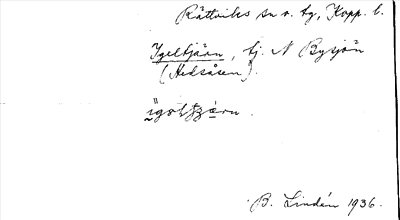 Rättviks sn o. tg, Kopp. l.
Igeltjärn, tj. N Bysjön
(Hedåsen).
B. Lindén 1936.